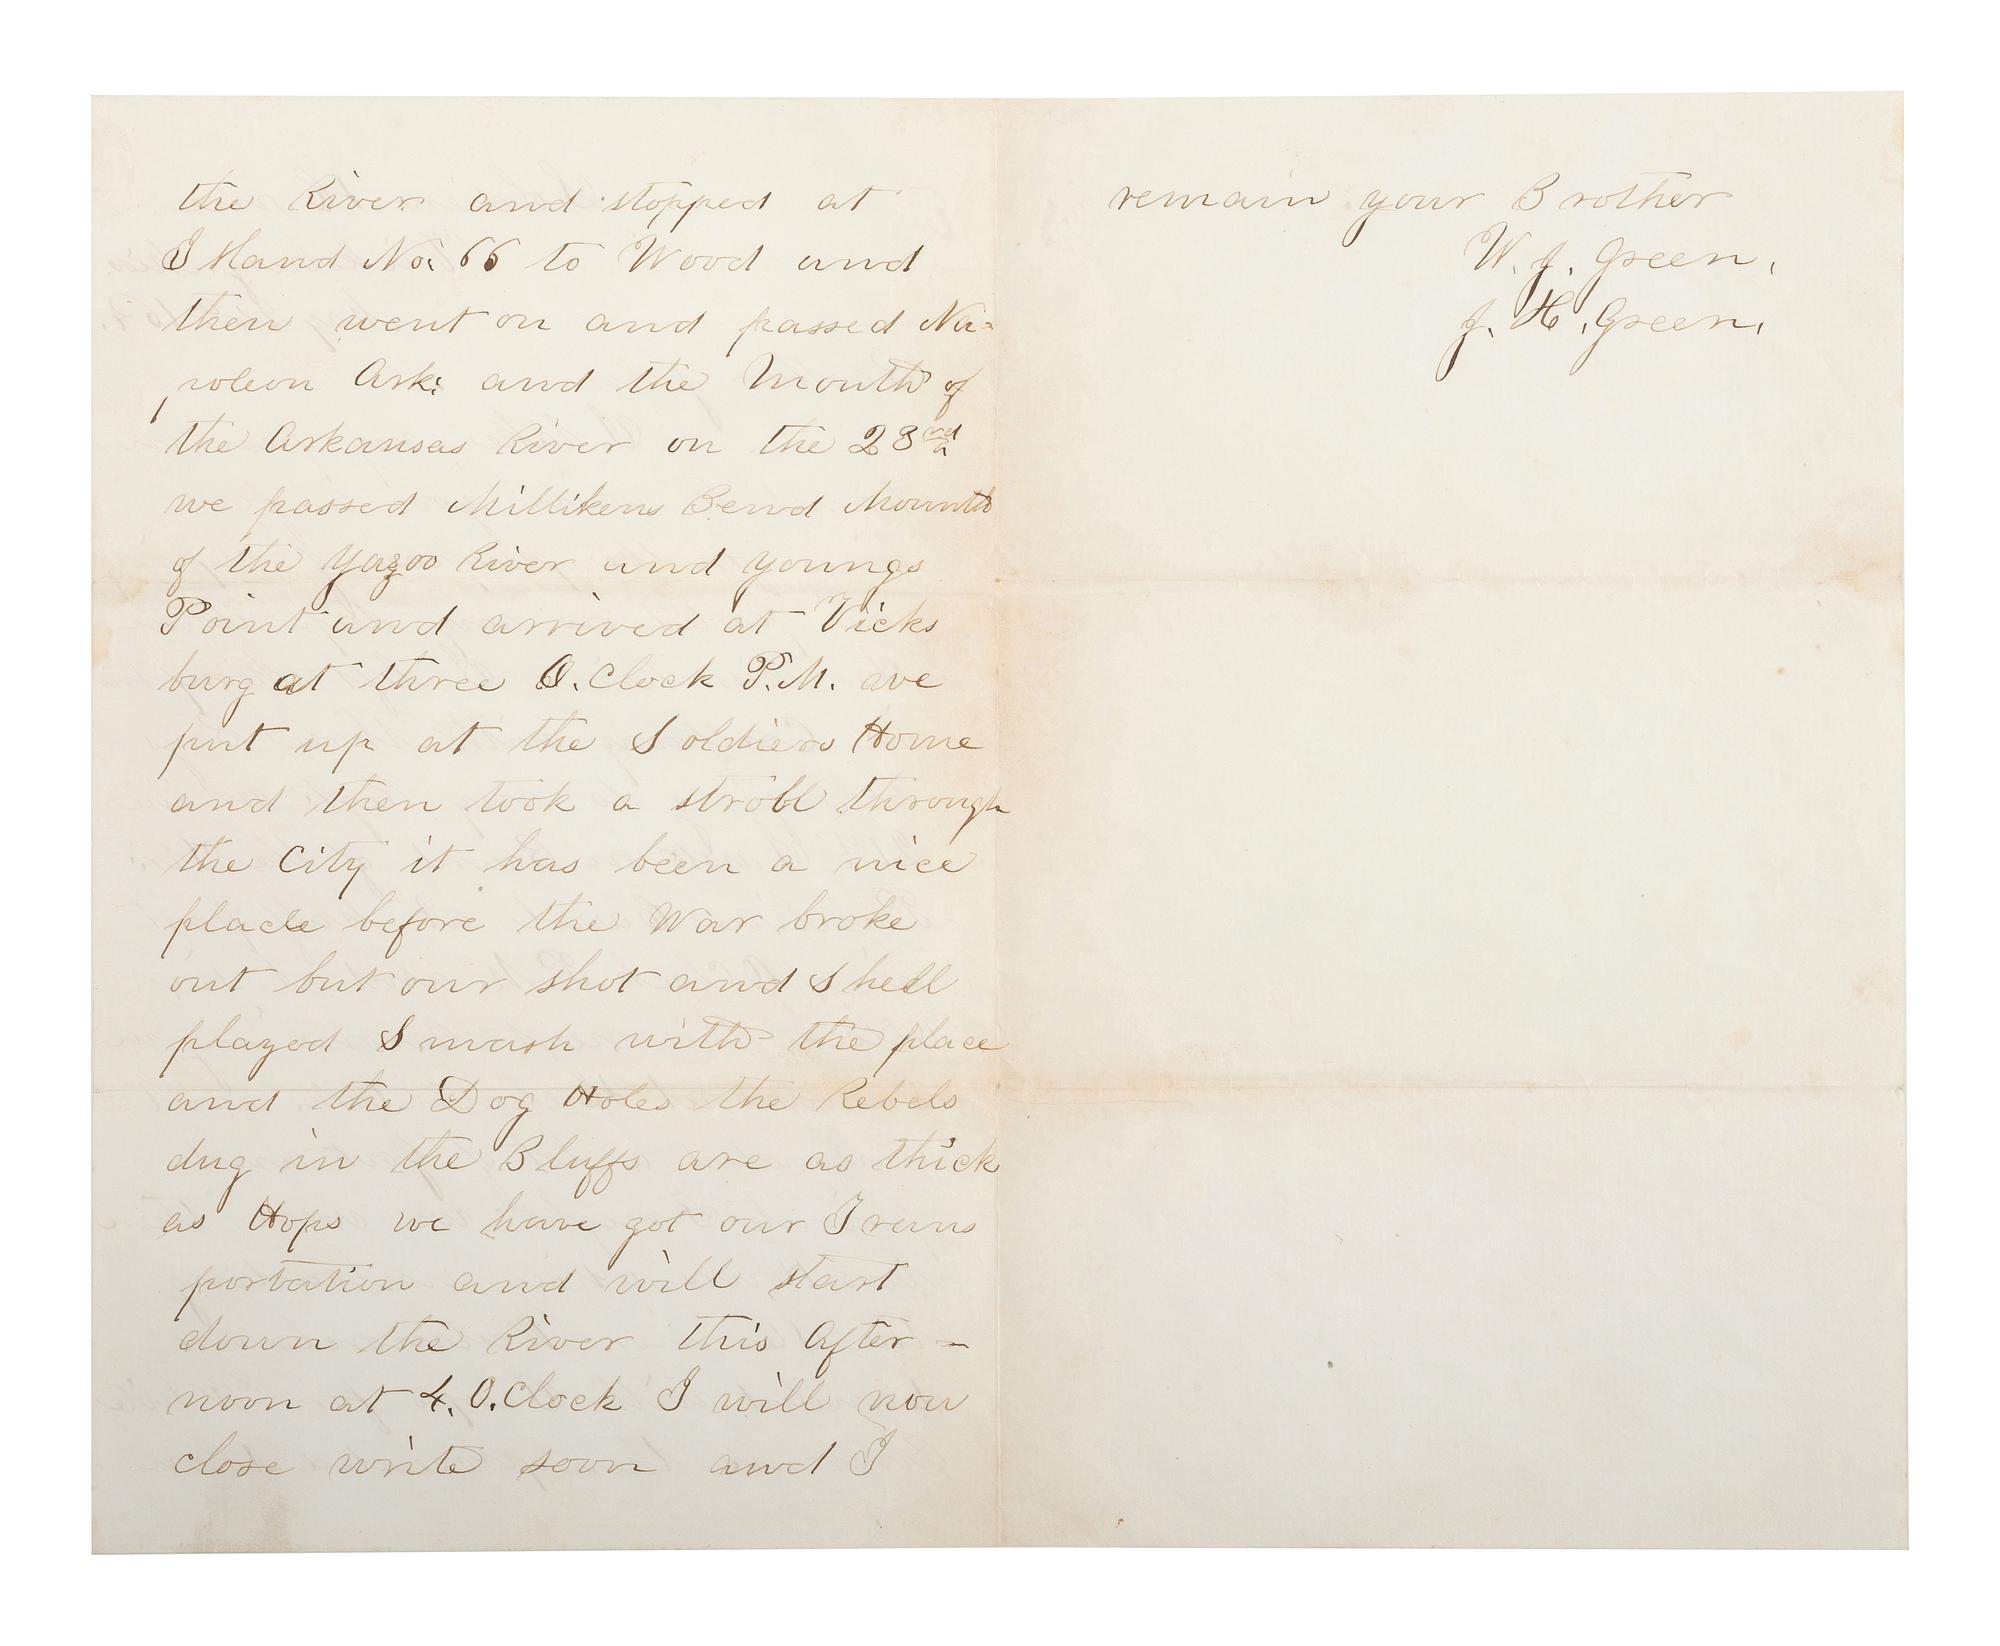 the River and stopped at
Island No. 66 to Wood and
then went on and passed Na=
poleon Ark. and the Mouth of
the Arkansas River on the 23rd
we passed Millikens Bend Mounth
of the Yazoo River and Youngs
Point and arrived at Vicks
burg at three O.Clock P.M. we
put up at the Soldiers Home
and then took a stroll through
the City it has been a nice
place before the War broke
out but our shot and Shell
played Smash with the place
and the Dog Holes the Rebels
dug in the Bluffs are as thick
as Hops we have got our Trans
portation and will start
down the River this After-
noon at 4. O.Clock I will now
close write soon and I
remain your Brother
W. J. Green.
J. H. Green.